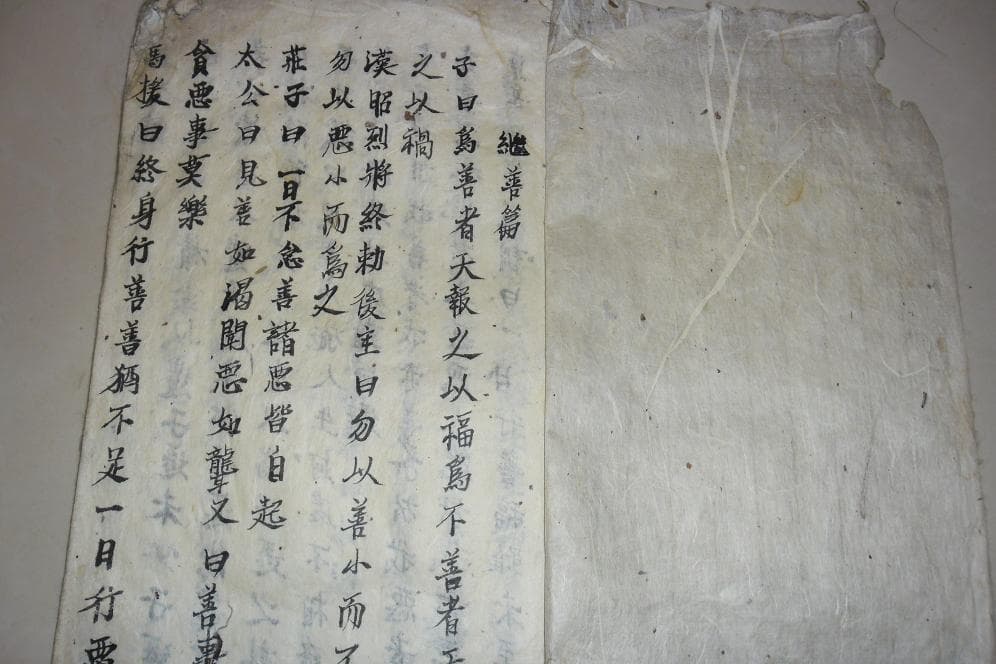 繼善篇
子曰爲善者天報之以福爲不善者天
之以禍
漢昭烈將終勅後主曰勿以善小而不
勿以惡小而爲之
莊子曰一日不念善諸惡皆自起
太公曰見善如渴聞惡如聾又曰善事
貪惡事莫樂
馬援曰終身行善善猶不足一日行惡